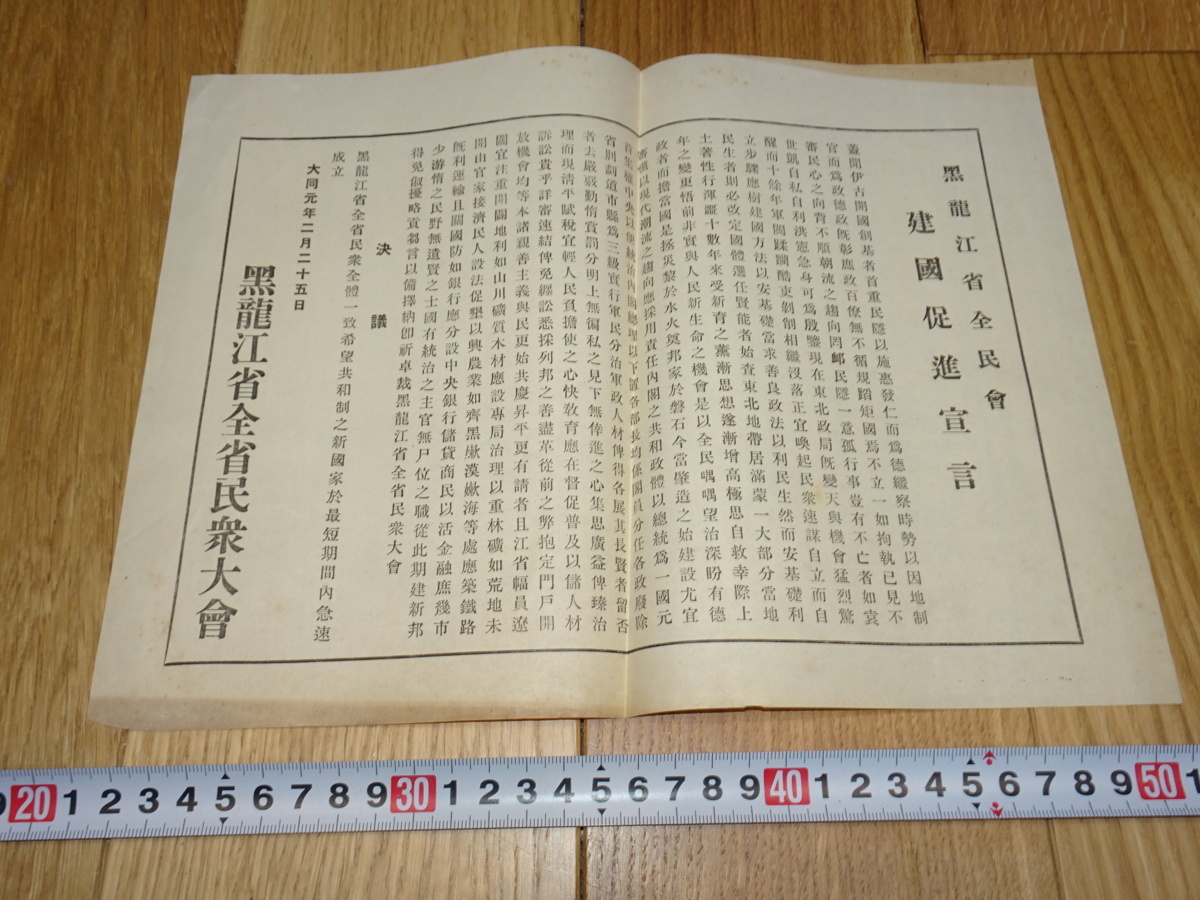 黑龍江省全民會
建國促進宣言
蓋開伊古開國創基者首重民隱以施惠發仁而爲德繼察時勢以因地制
官而爲政德政旣彰庶政百僚無不循規蹈矩國焉不立一如拘執已見不
審民心之向背不順朝流之趨向罔邮民隱一意孤行事豈有不亡者如袁
世凱自私自利洪憲急身可爲殷鑒現在東北政局旣變天與機會猛烈驚
醒而十餘年軍閥蹂躪酷吏剝削相繼沒落正宜喚起民衆速謀自立而自
立步驟應樹建國方法以安基礎當求善良政法以利民生然而安基礎利
民生者則必改定國體選任賢能者始查東北地帶居滿蒙一大部分當地
土著性行渾疆十數年來受新育之薰漸思想遂漸增高極思自救幸際上
年之變更悟前非實與人民新生命之機會是以全民喁喁望治深盼有德
政者而擔當國是拯災黎於水火奠邦家於磐石今當肇造之始建設尤宜
審慎以現代潮流之趨向應採用責任內閣之共和政體以總統爲一國元
首集權中央以便統治內閣總理以下置各部長均係閣員分任各政廢除
省別制道市縣爲三級實行軍民分治軍政人材俾得各展其長賢者留否
者去嚴覈勤惰賞罰分明上無徧私之見下無倖進之心集思廣益俾臻治
理而現淸平賦稅宜輕人民負擔使之心快敎育應在督促普及以儲人材
訴訟貴乎詳審速結俾免經訟悉採列邦之善盡革從前之弊抱定門戶開
放機會均等本諸親善主義與民更始共慶昇平更有請者且江省幅員遼
闊宜注重開闢地利如山川礦質木材應設專局治理以重林礦如荒地未
開由官家接濟民人設法促墾以興農業如齊黑嫩漠嫩海等處應築鐵路
旣利運輸且關國防如銀行應分設中央銀行儲貸商民以活金融庶幾市
少游惰之民野無遺賢之士國有統治之主官無尸位之職從此期建新邦
得免俶擾略貢芻言以備擇納卽祈卓裁黑龍江省全省民衆大會
決議
黑龍江省全省民衆全體一致希望共和制之新國家於最短期間內急速
成立
大同元年二月二十五日
黑龍江省全省民衆大會
9 20 1 2 3 4 5 6 7 8 9 30 1 2 3 4 5 6 7 8 9 40 1 2 3 4 5 6 7 8 9 50 1